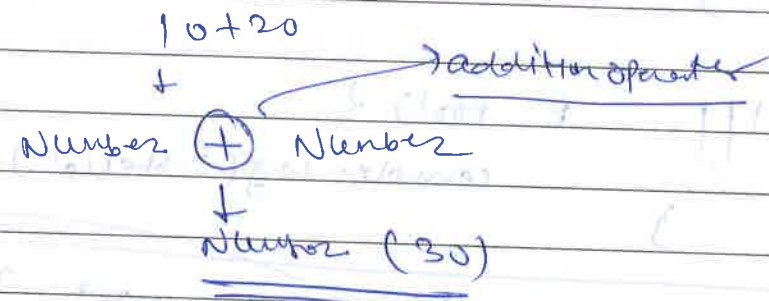 10+20
addition operator
Number + Number
Number (30)